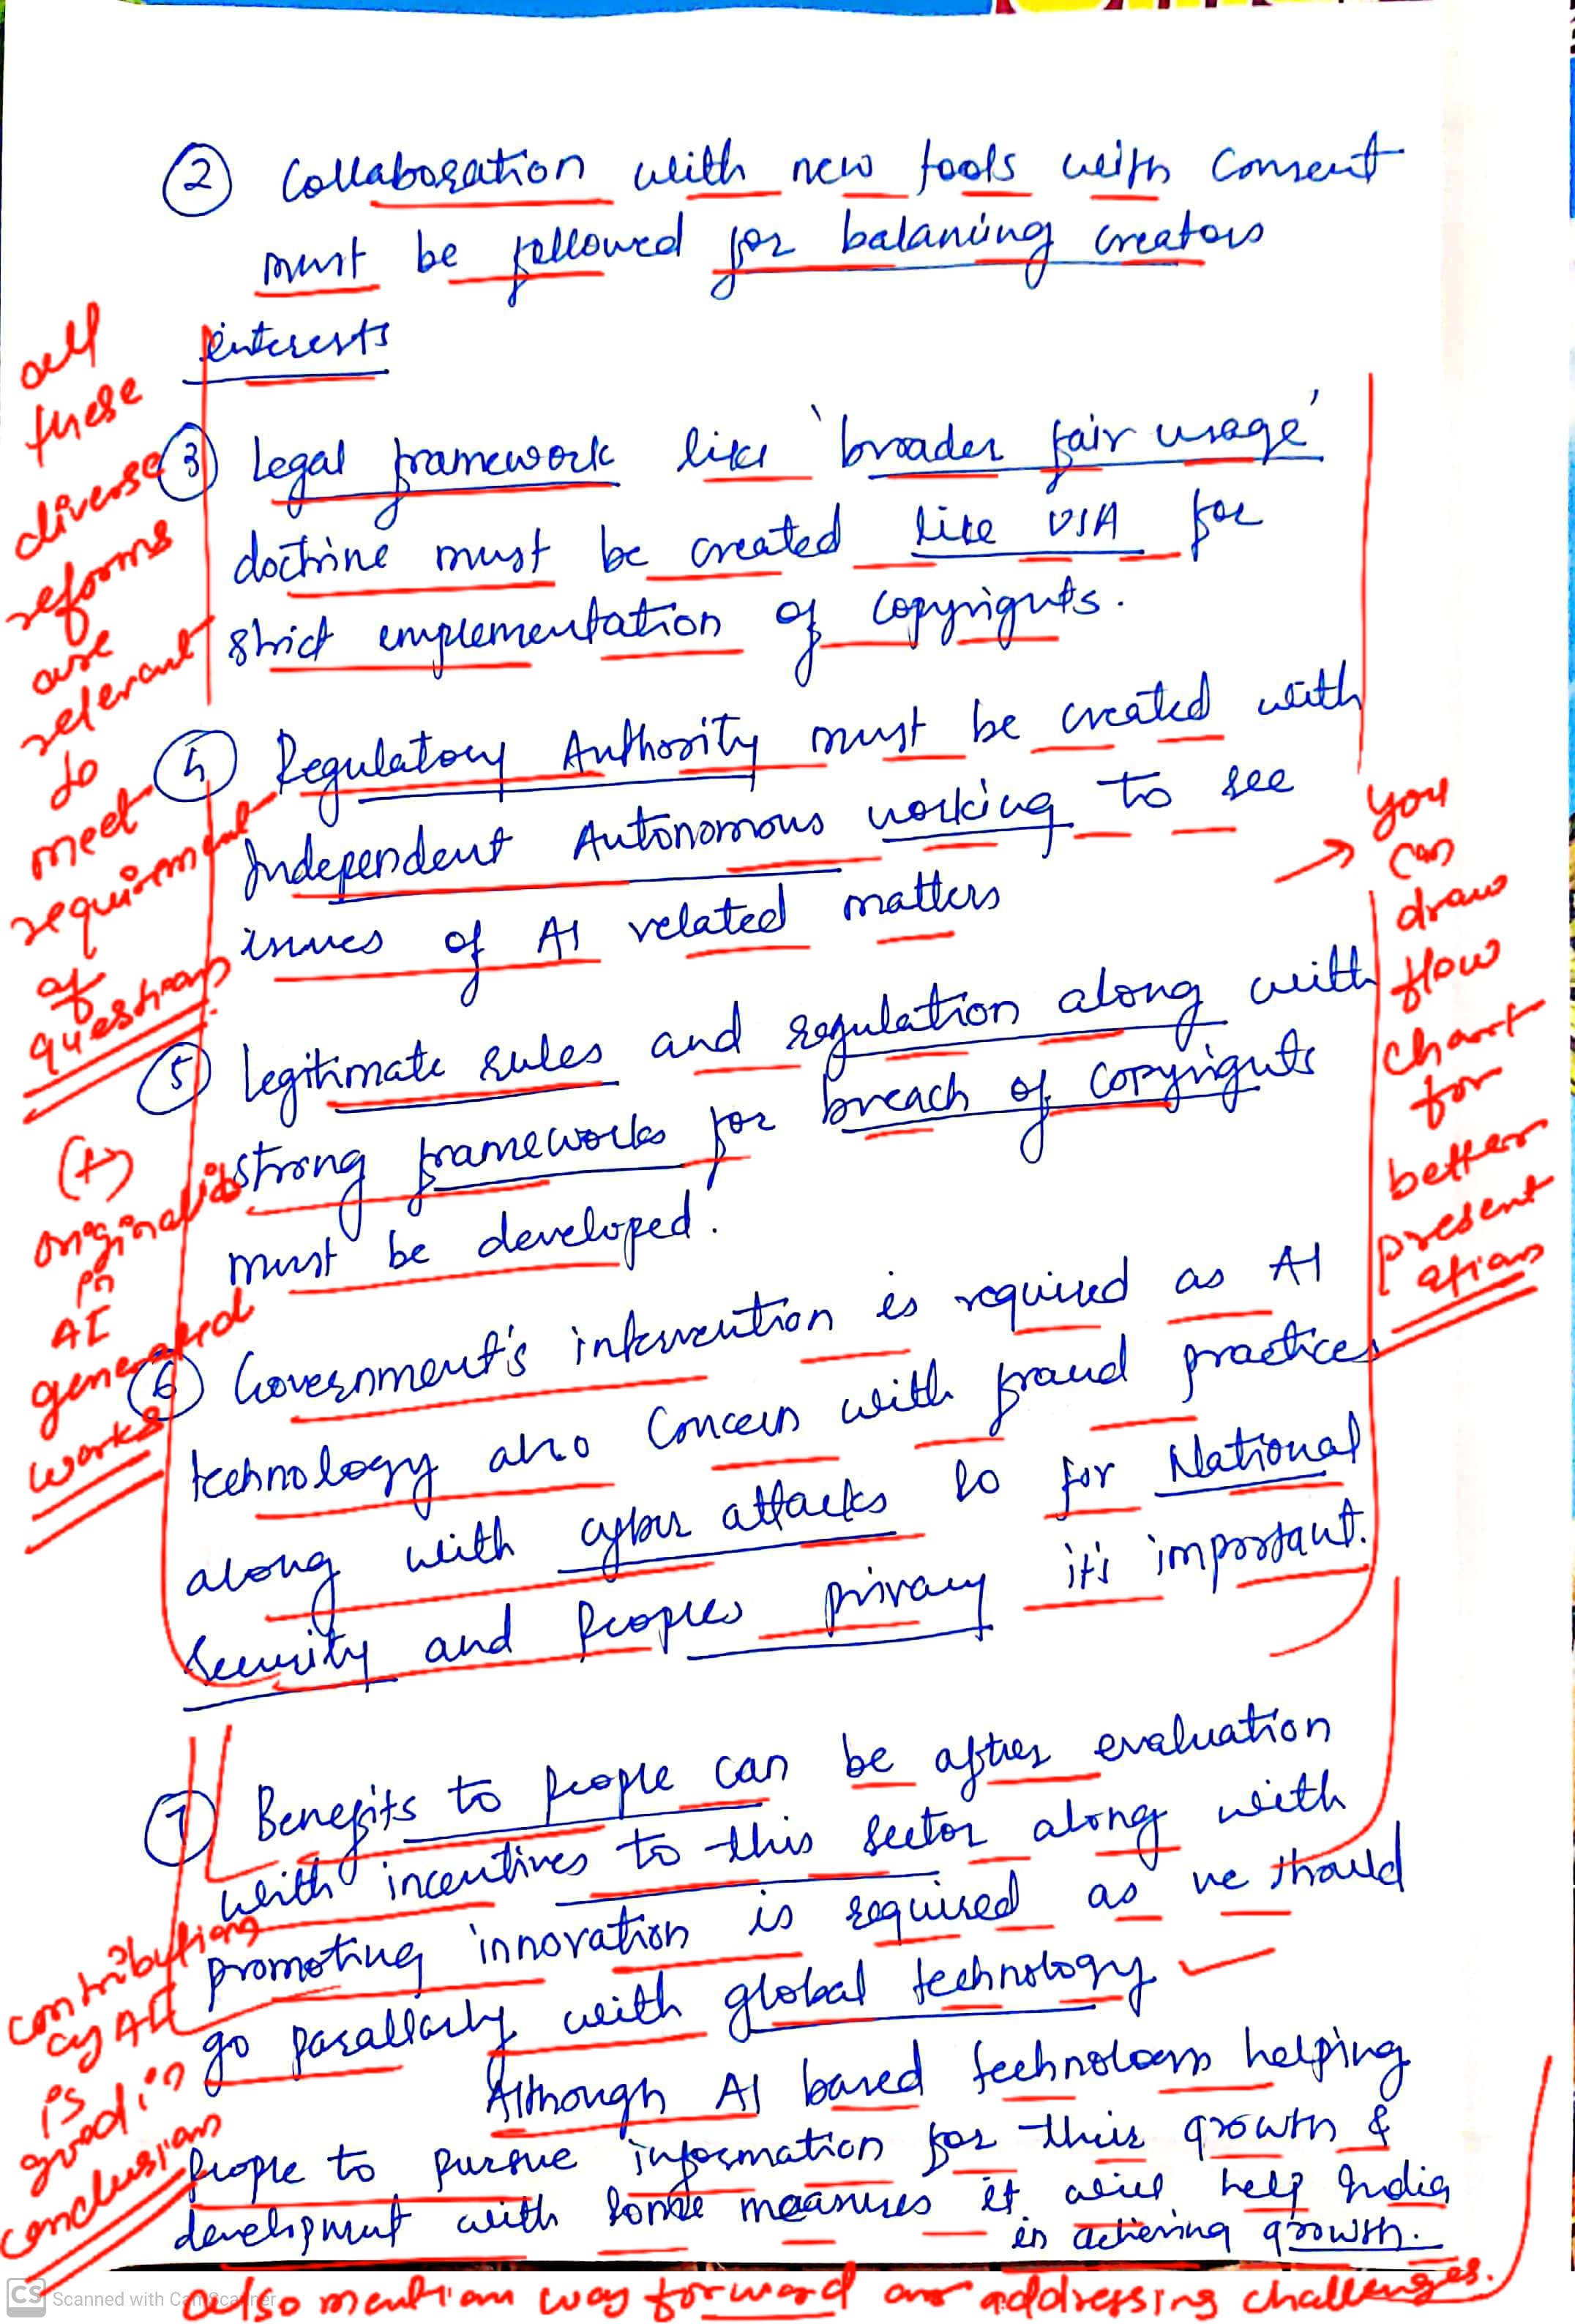 ② Collaboration with new tools with consent
must be followed for balancing creators
interests
③ Legal framework like 'broader fair usage'
doctrine must be created like USA for
strict implementation of copyrights.
④ Regulatory Authority must be created with
Independent Autonomous working to see
issues of AI related matters
⑤ Legitimate rules and regulation along with
strong frameworks for breach of copyrights
must be developed.
⑥ Government's intervention is required as AI
technology also concern with fraud practices
along with cyber attacks so for National
Security and Peoples privacy it's important.
⑦ Benefits to people can be after evaluation
with incentives to this sector along with
promoting innovation is required as we should
go parallarly with global technology
Although AI based technology helping
people to pursue information for their growth &
development with some measures it will help India
in achieving growth.
all
these
diverse
reforms
are
relevant
to
meet
requirement
of
questions
(+)
originality
in
AI
generated
works
you
can
draw
flow
chart
for
better
present
ations
contributions
of AI
is
good in
conclusions
also mention way forward and addressing challenges.
CS Scanned with CamScanner